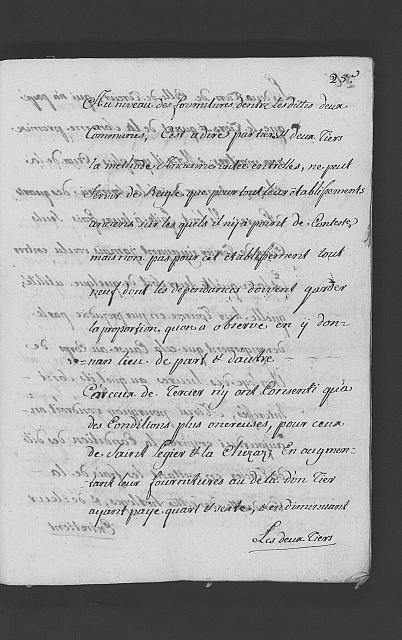 25.
Au niveau des fournitures d'entre lesdittes deux
Communes, C'est à dire par tiers & deux Tiers
la methode Ancienne entre elles, ne peut
servir de Regle que pour tout leur établissements
anciens sur les quels il n'y a point de Conteste,
mais non pas pour cet établissement tout
neuf dont les dépendances doivent garder
la proportion qu'on a observé en y don-
nan lieu de part & d'autre.
Car ceux de Tercier n'y ont Consenti qu'à
des Conditions plus onereuses, pour ceux
de Saint Legier & la Chiesaz, En augmen-
tant leur fournitures au de la d'un Tier
ayant payé quart & sexte, & en diminuant
Les deux Tiers